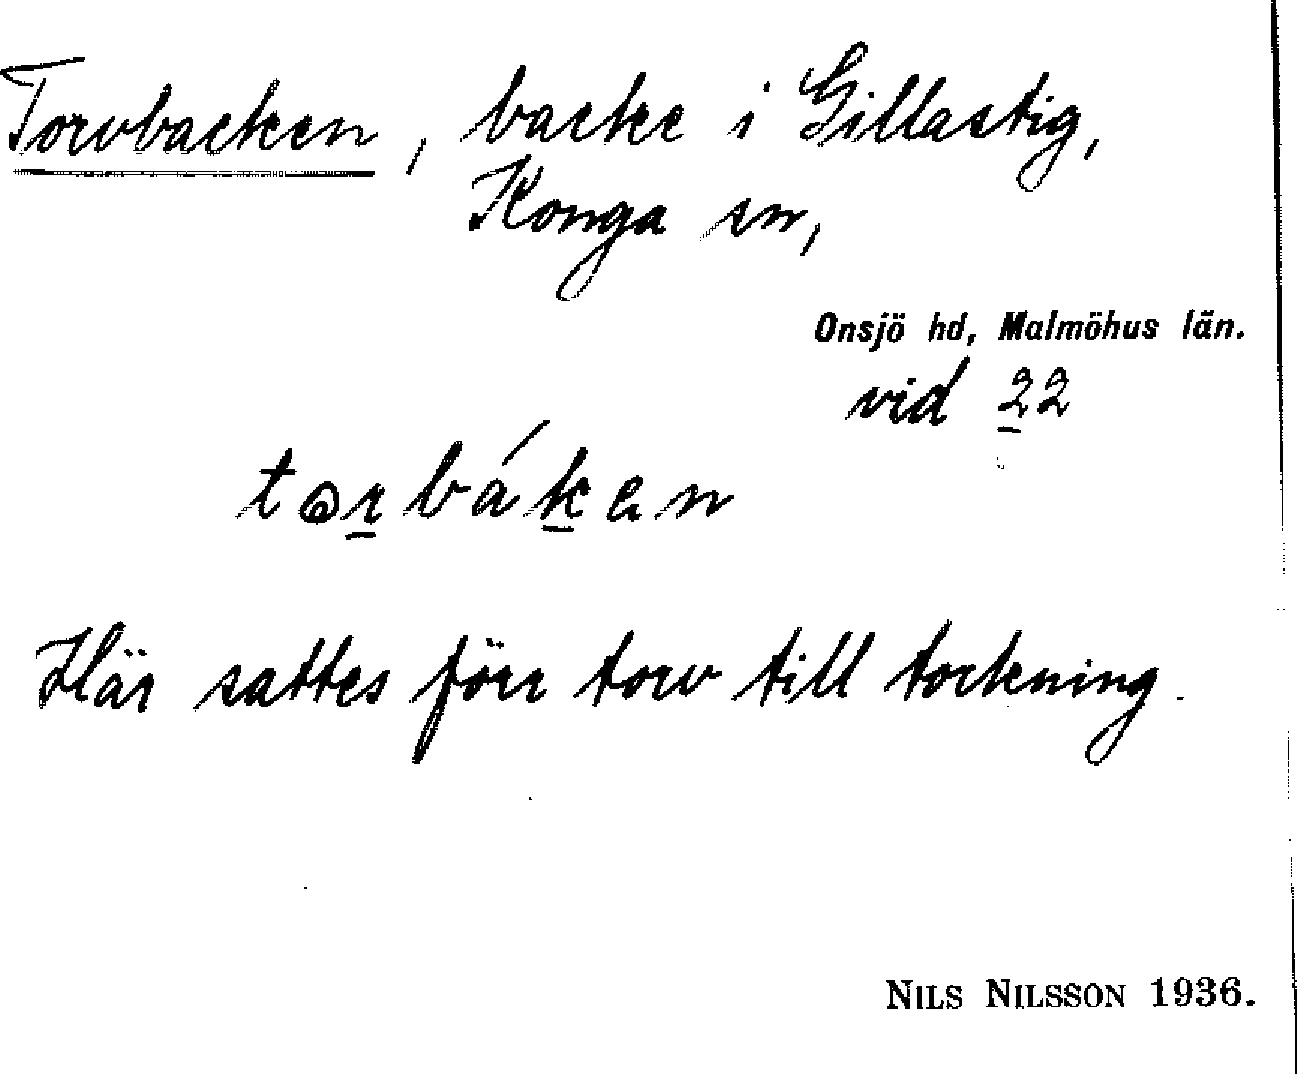 Torvbacken, backe i Gillastig,
Konga sn,
Onsjö hd, Malmöhus län.
vid 22
tɷrbáken
Här sattes förr torv till torkning.
NILS NILSSON 1936.